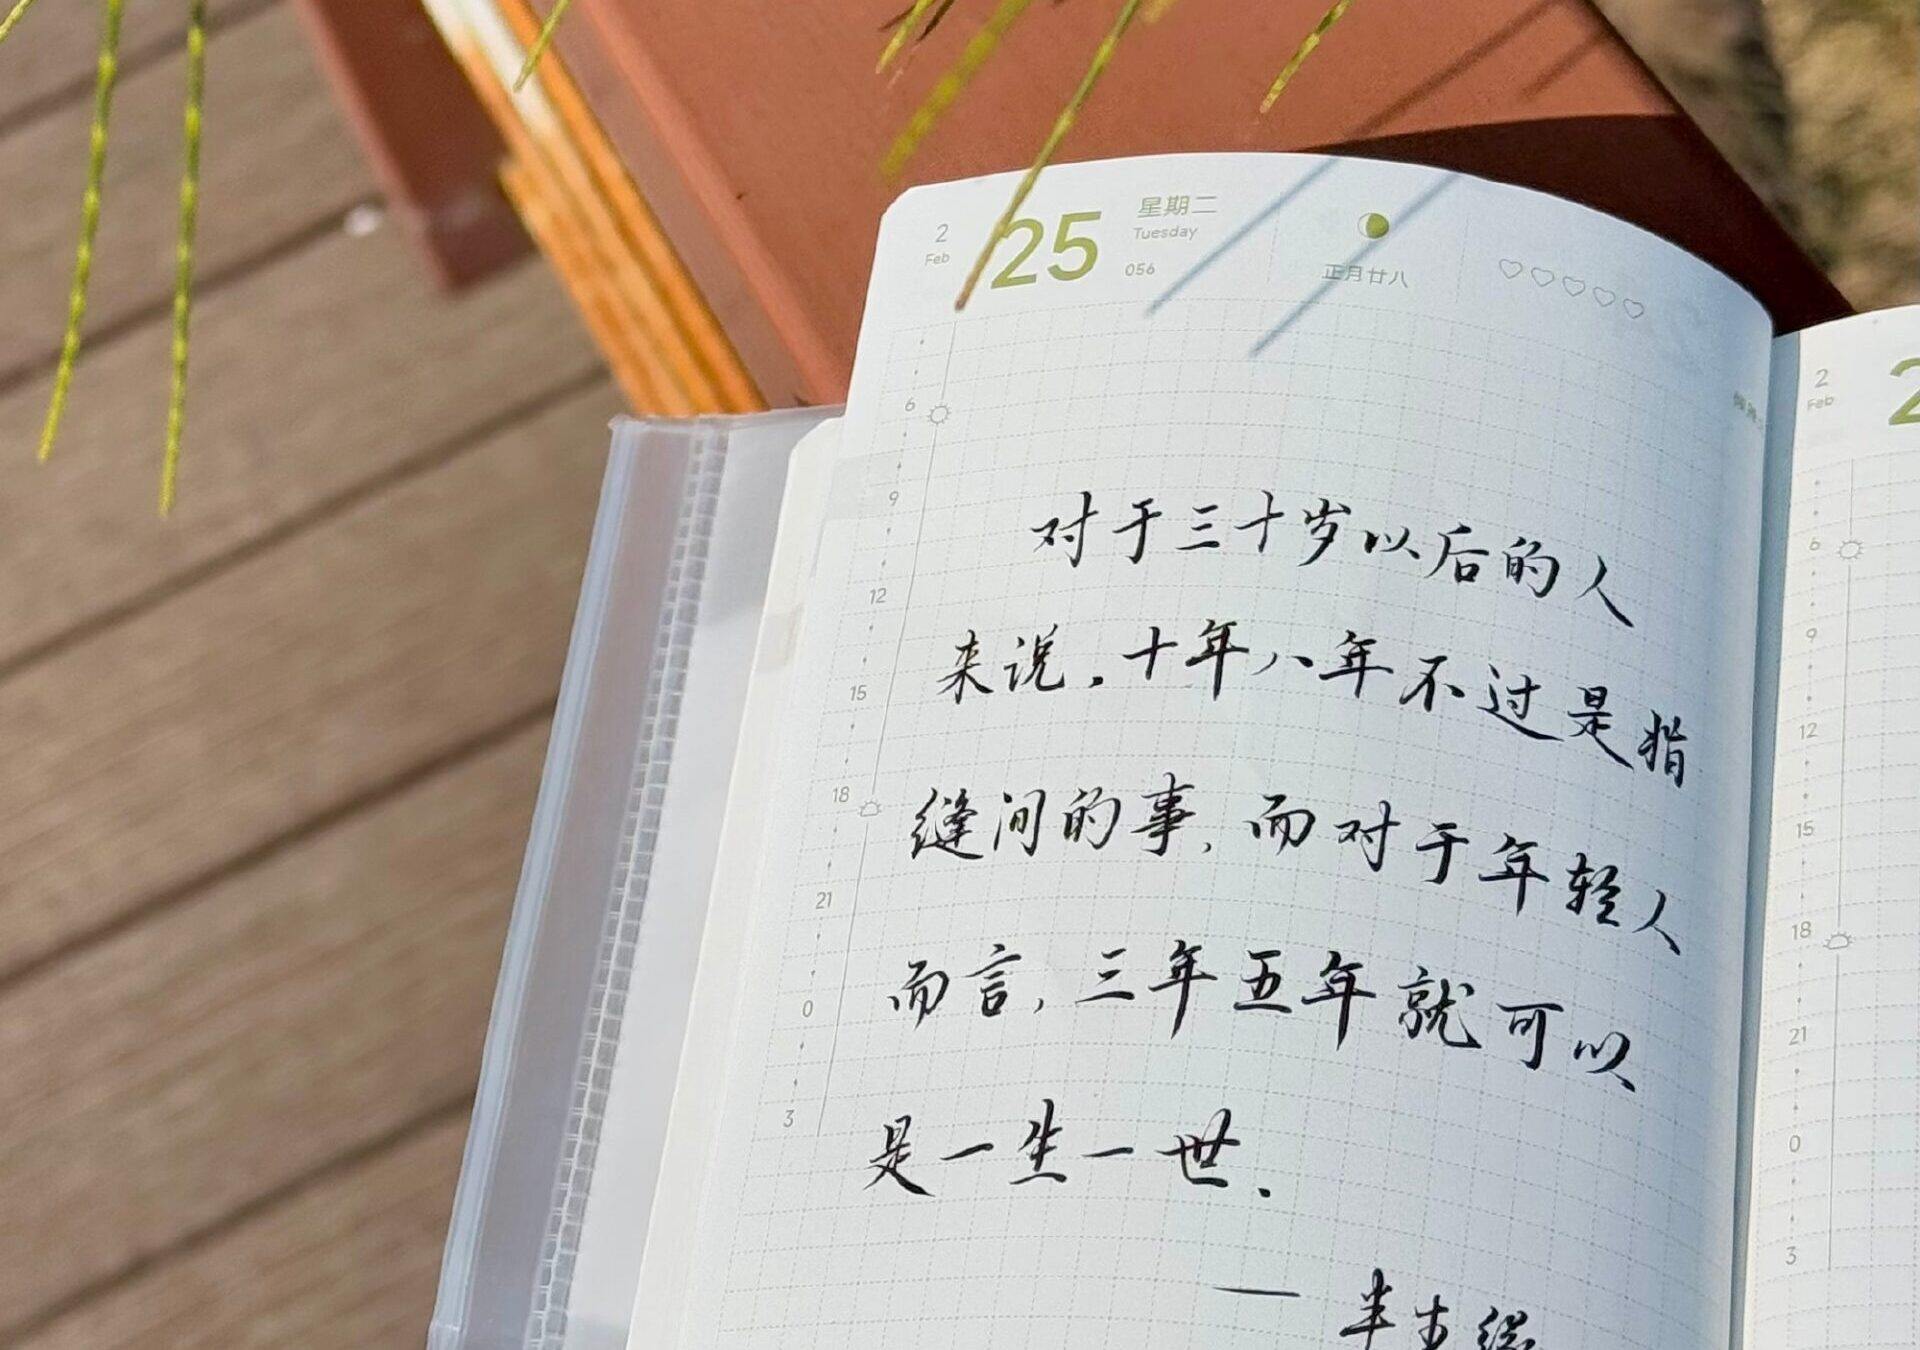 2
Feb
25
星期二
Tuesday
056
正月廿八
6
9
12
15
18
21
0
3
对于三十岁以后的人
来说，十年八年不过是指
缝间的事，而对于年轻人
而言，三年五年就可以
是一生一世．
— 半生缘
2
Feb
6
9
12
15
18
21
0
3